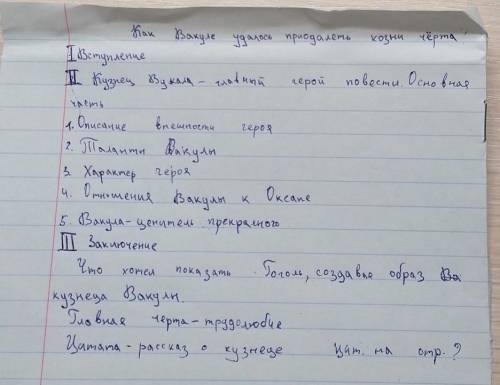 Как Вакуле удалось приодалеть козни чёрта
I Вступление
II Кузнец Вукала – главный герой повести. Основная
часть
1. Описание внешности героя
2. Таланты Вакулы
3. Характер героя
4. Отношения Вакулы к Оксане
5. Вакула – ценитель прекрасного
III Заключение
Что хотел показать Гоголь, создавая образ Ва
кузнеца Вакулы.
Главная черта – трудолюбие
Цитата – рассказ о кузнеце Цит. на стр.?